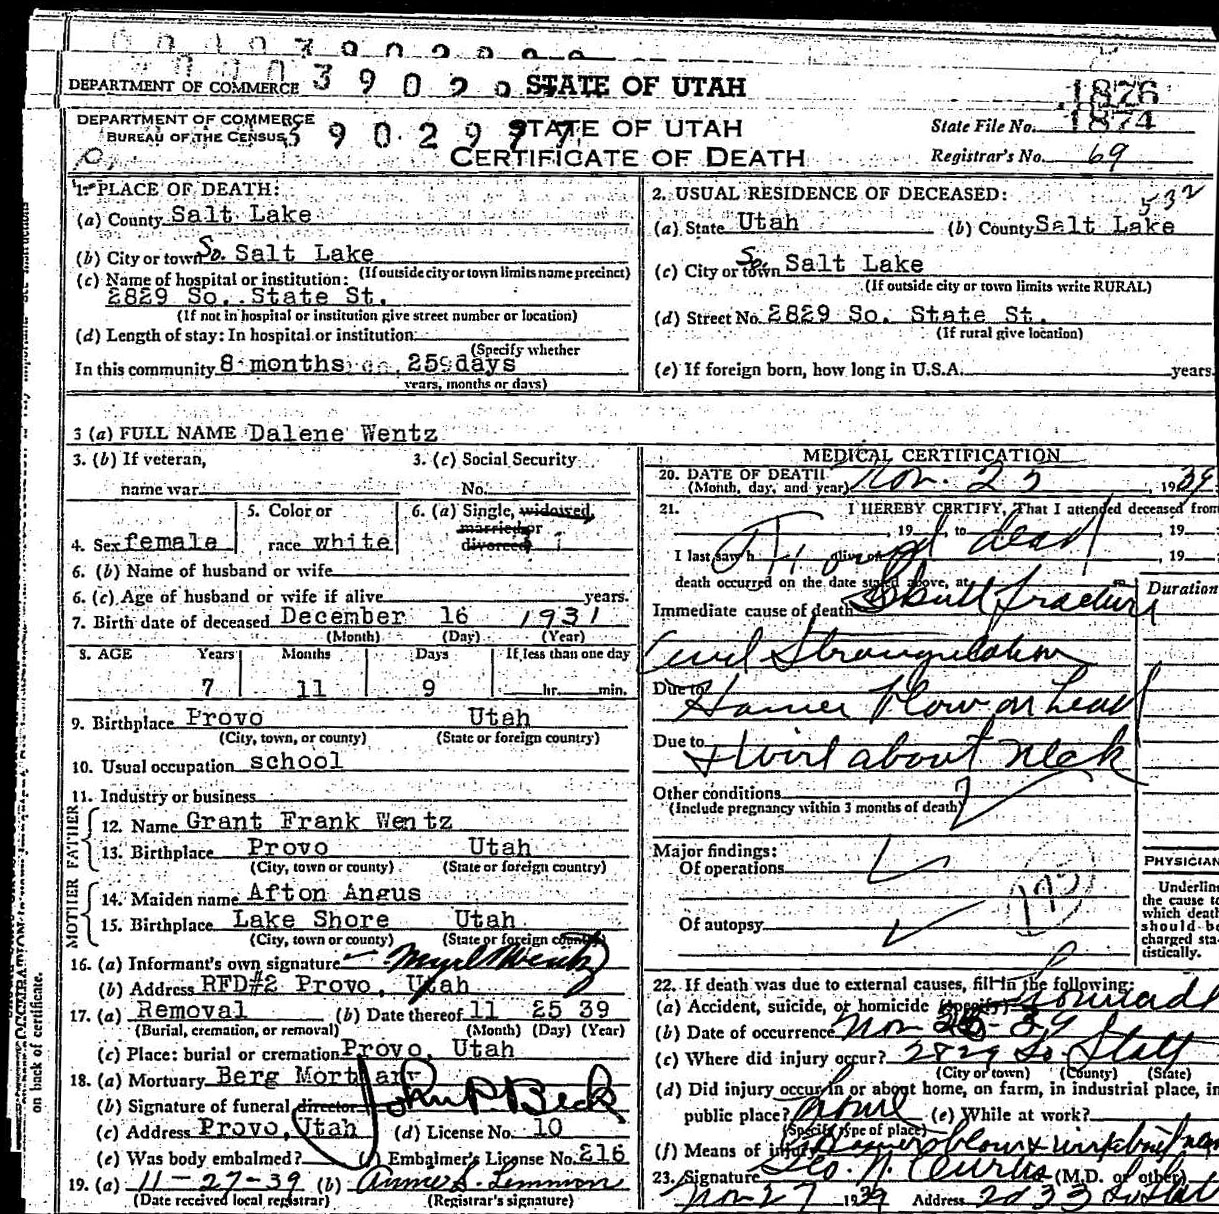 DEPARTMENT OF COMMERCE 3 9 0 2 9 STATE OF UTAH
1876
DEPARTMENT OF COMMERCE
BUREAU OF THE CENSUS 3 9 0 2 9 7 7 STATE OF UTAH
State File No. 1874
CERTIFICATE OF DEATH
Registrar's No. 69
1. PLACE OF DEATH:
(a) County Salt Lake
(b) City or town So. Salt Lake
(If outside city or town limits name precinct)
(c) Name of hospital or institution:
2829 So. State St.
(If not in hospital or institution give street number or location)
(d) Length of stay: In hospital or institution
(Specify whether
In this community 8 months 25 days
years, months or days)
2. USUAL RESIDENCE OF DECEASED:
532
(a) State Utah (b) County Salt Lake
(c) City or town So. Salt Lake
(If outside city or town limits write RURAL)
(d) Street No. 2829 So. State St.
(If rural give location)
(e) If foreign born, how long in U.S.A. years.
3 (a) FULL NAME Dalene Wentz
3. (b) If veteran,
name war
3. (c) Social Security
No.
4. Sex female
5. Color or
race white
6. (a) Single, widowed,
married or
divorced
6. (b) Name of husband or wife
6. (c) Age of husband or wife if alive years.
7. Birth date of deceased December 16 1931
(Month) (Day) (Year)
8. AGE Years Months Days If less than one day
7 11 9 hr. min.
9. Birthplace Provo Utah
(City, town, or county) (State or foreign country)
10. Usual occupation school
11. Industry or business
FATHER
12. Name Grant Frank Wentz
13. Birthplace Provo Utah
(City, town or county) (State or foreign country)
MOTHER
14. Maiden name Afton Angus
15. Birthplace Lake Shore Utah
(City, town or county) (State or foreign country)
16. (a) Informant's own signature Wentz
(b) Address RFD#2 Provo, Utah
17. (a) Removal (b) Date thereof 11 25 39
(Burial, cremation, or removal) (Month) (Day) (Year)
(c) Place: burial or cremation Provo, Utah
18. (a) Mortuary Berg Mortuary
(b) Signature of funeral director John P. Beck
(c) Address Provo, Utah (d) License No. 10
(e) Was body embalmed? (f) Embalmer's License No. 216
19. (a) 11-27-39 (b) Annie S. Lemmon
(Date received local registrar) (Registrar's signature)
on back of certificate.
MEDICAL CERTIFICATION
20. DATE OF DEATH Nov. 25, 1939
(Month, day, and year)
21. I HEREBY CERTIFY, That I attended deceased from
, 19 , to , 19
I last saw h alive on , 19
Found dead
death occurred on the date stated above, at m
Duration
Immediate cause of death Skull fracture
and Strangulation
Due to Hamer blow on head
Due to + Wire about neck
Other conditions
(Include pregnancy within 3 months of death)
Major findings:
Of operations
Of autopsy
PHYSICIAN
Underline
the cause to
which death
should be
charged sta-
tistically.
22. If death was due to external causes, fill in the following:
(a) Accident, suicide, or homicide (specify)
(b) Date of occurrence Nov 25-39
(c) Where did injury occur? 2829 So State
(City or town) (County) (State)
(d) Did injury occur in or about home, on farm, in industrial place, in
public place? home (e) While at work?
(Specify type of place)
(f) Means of injury Hamer blow + wire about neck
23. Signature Geo. N. Curtis (M.D. or other)
Nov 27 1939 Address 2033 So State